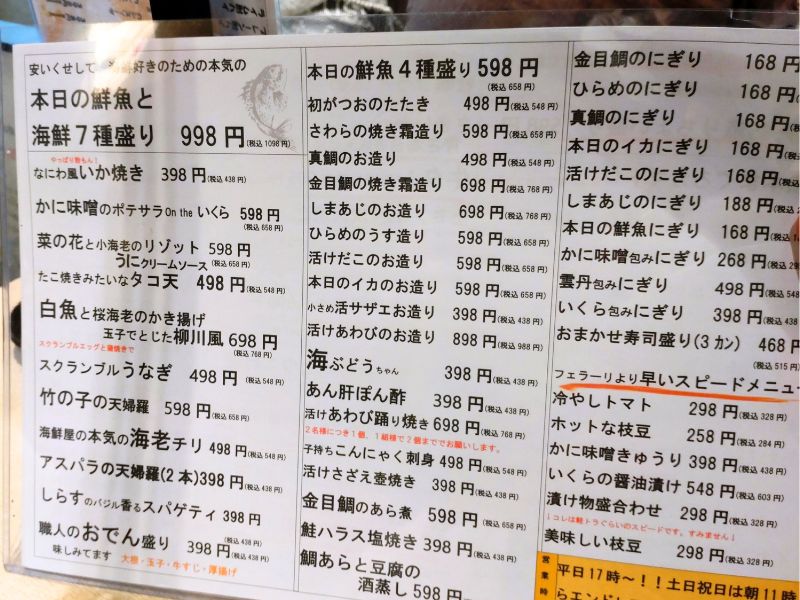 安いくせして 海鮮好きのための本気の
本日の鮮魚と
海鮮7種盛り 998円(税込 1098円)
やっぱり粉もん!
なにわ風いか焼き 398円(税込 438円)
かに味噌のポテサラ On the いくら 598円
(税込 658円)
菜の花と小海老のリゾット 598円
うにクリームソース (税込 658円)
たこ焼きみたいなタコ天 498円(税込 548円)
白魚と桜海老のかき揚げ
玉子でとじた柳川風 698円
(税込 768円)
スクランブルエッグと蒲焼きで
スクランブルうなぎ 498円(税込 548円)
竹の子の天婦羅 598円(税込 658円)
海鮮屋の本気の海老チリ 498円(税込 548円)
アスパラの天婦羅(2本)398円(税込 438円)
しらすのバジル香るスパゲティ 398円
(税込 438円)
職人のおでん盛り 398円(税込 438円)
味しみてます 大根・玉子・牛すじ・厚揚げ
本日の鮮魚4種盛り 598円
(税込 658円)
初がつおのたたき 498円(税込 548円)
さわらの焼き霜造り 598円(税込 658円)
真鯛のお造り 498円(税込 548円)
金目鯛の焼き霜造り 698円(税込 768円)
しまあじのお造り 698円(税込 768円)
ひらめのうす造り 598円(税込 658円)
活けだこのお造り 598円(税込 658円)
本日のイカのお造り 598円(税込 658円)
小さめ活サザエお造り 398円(税込 438円)
活けあわびのお造り 898円(税込 988円)
海ぶどうちゃん 398円(税込 438円)
あん肝ぽん酢 398円(税込 438円)
活けあわび踊り焼き 698円(税込 768円)
2名様につき1個、1組様で2個まででお願いします。
子持ちこんにゃく刺身 498円(税込 548円)
活けさざえ壺焼き 398円(税込 438円)
金目鯛のあら煮 598円(税込 658円)
鮭ハラス塩焼き 398円(税込 438円)
鯛あらと豆腐の
酒蒸し 598円(税込 658円)
金目鯛のにぎり 168円
ひらめのにぎり 168円
真鯛のにぎり 168円
本日のイカにぎり 168円
活けだこのにぎり 168円
しまあじのにぎり 188円
本日の鮮魚にぎり 168円
かに味噌包みにぎり 268円
雲丹包みにぎり 498円
いくら包みにぎり 398円
おまかせ寿司盛り(3カン) 468円
(税込 515円)
フェラーリより早いスピードメニュー
冷やしトマト 298円(税込 328円)
ホットな枝豆 258円(税込 284円)
かに味噌きゅうり 398円(税込 438円)
いくらの醤油漬け 548円(税込 603円)
漬け物盛合わせ 298円(税込 328円)
↓コレは軽トラぐらいのスピードです。すみません!
美味しい枝豆 298円(税込 328円)
営業時
平日17時~!!土日祝日は朝11時